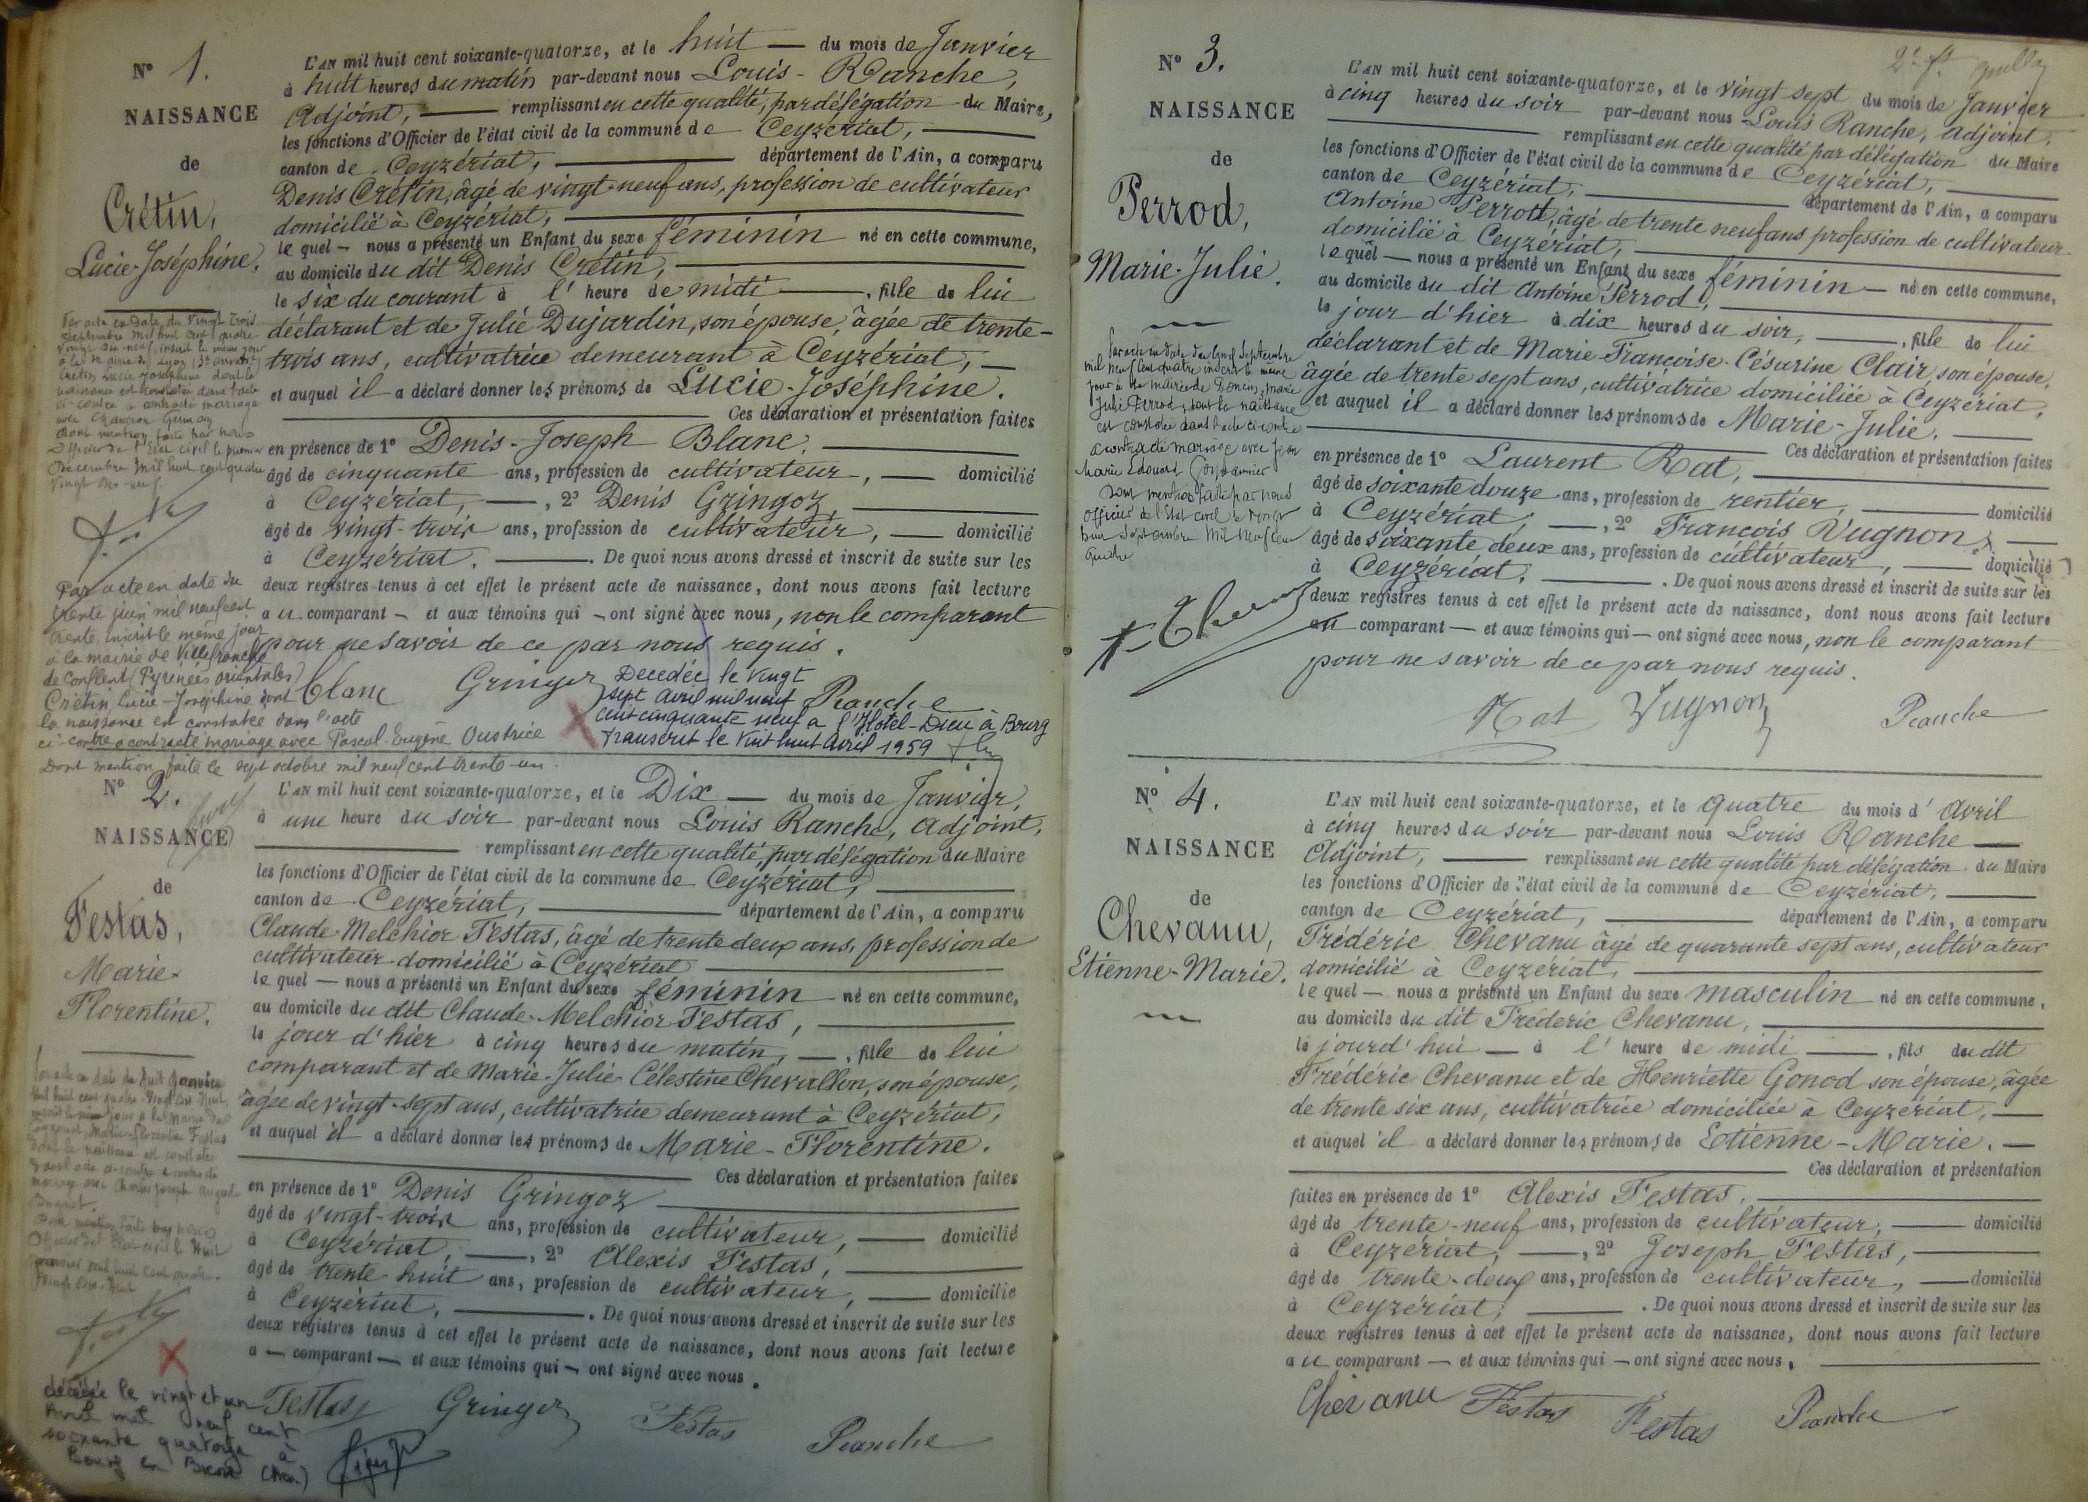 N° 1.
NAISSANCE
de
Crétin,
Lucie-Joséphine.
L'AN mil huit cent soixante-quatorze, et le huit — du mois de Janvier
à huit heures du matin par-devant nous Louis - Ranche,
Adjoint, — remplissant en cette qualité, par délégation du Maire,
les fonctions d'Officier de l'état civil de la commune de Ceyzériat, —
canton de Ceyzériat, — département de l'Ain, a comparu
Denis Crétin, âgé de vingt-neuf ans, profession de cultivateur
domicilié à Ceyzériat, —
le quel — nous a présenté un Enfant du sexe féminin né en cette commune,
au domicile du dit Denis Crétin, —
le six du courant à l'heure de midi —, fille de lui
déclarant et de Julie Dujardin, son épouse, âgée de trente-
trois ans, cultivatrice demeurant à Ceyzériat, —
et auquel il a déclaré donner les prénoms de Lucie-Joséphine.
— Ces déclaration et présentation faites
en présence de 1° Denis-Joseph Blanc, —
âgé de cinquante ans, profession de cultivateur, — domicilié
à Ceyzériat, —, 2° Denis Gringoz —
âgé de vingt-trois ans, profession de cultivateur, — domicilié
à Ceyzériat. —. De quoi nous avons dressé et inscrit de suite sur les
deux registres tenus à cet effet le présent acte de naissance, dont nous avons fait lecture
au comparant — et aux témoins qui — ont signé avec nous, non le comparant
pour ne savoir de ce par nous requis.
Blanc Gringoz Ranche
Par acte en date du vingt trois
septembre mil huit cent quatre
vingt dix-neuf inscrit le même jour
à la mairie de Lyon (3e arrondt)
Crétin Lucie Joséphine dont la
naissance est constatée dans l'acte
ci-contre a contracté mariage
avec
dont mention faite par nous
Officier de l'Etat civil le premier
Décembre mil huit cent quatre
vingt dix-neuf
Par acte en date du
trente juin mil neuf cent
trente, inscrit le même jour
à la mairie de Villefranche
de conflent (Pyrénées orientales)
Crétin, Lucie-Joséphine dont
la naissance est constatée dans l'acte
ci-contre a contracté mariage avec Pascal-Eugène Oustrice
Dont mention faite le sept octobre mil neuf cent trente-un.
Decedée le vingt
sept Avril mil neuf
cent cinquante neuf a l'Hotel-Dieu à Bourg
Transcrit le vint huit Avril 1959
N° 2.
NAISSANCE
de
Festas,
Marie-
Florentine.
L'AN mil huit cent soixante-quatorze, et le Dix — du mois de Janvier,
à une heure du soir par-devant nous Louis Ranche, Adjoint,
— remplissant en cette qualité, par délégation du Maire
les fonctions d'Officier de l'état civil de la commune de Ceyzériat, —
canton de Ceyzériat, — département de l'Ain, a comparu
Claude-Melchior Festas, âgé de trente deux ans, profession de
cultivateur domicilié à Ceyzériat —
le quel — nous a présenté un Enfant du sexe féminin né en cette commune,
au domicile du dit Claude-Melchior Festas, —
le jour d'hier à cinq heures du matin, —, fille de lui
comparant et de Marie-Julie-Célestine Chevallon, son épouse,
âgée de vingt-sept ans, cultivatrice demeurant à Ceyzériat,
et auquel il a déclaré donner les prénoms de Marie-Florentine.
— Ces déclaration et présentation faites
en présence de 1° Denis Gringoz —
âgé de vingt-trois ans, profession de cultivateur, — domicilié
à Ceyzériat, —, 2° Alexis Festas, —
âgé de trente huit ans, profession de cultivateur, — domicilié
à Ceyzériat, —. De quoi nous avons dressé et inscrit de suite sur les
deux registres tenus à cet effet le présent acte de naissance, dont nous avons fait lecture
a — comparant — et aux témoins qui — ont signé avec nous.
Festas Gringoz Festas Ranche
Par acte en date du huit Janvier
mil huit cent quatre vingt dix huit,
inscrit le même jour à la mairie de
Ceyzériat, Marie-Florentine Festas
dont la naissance est constatée
dans l'acte ci-contre a contracté
mariage avec Charles Joseph August
Dont mention faite par nous
Officier de l'Etat civil le huit
janvier mil huit cent quatre-
vingt dix-huit
décédée le vingt et un
Avril mil neuf cent
soixante quatorze à
Bourg en Bresse (Ain)
N° 3.
NAISSANCE
de
Perrod,
Marie-Julie.
L'AN mil huit cent soixante-quatorze, et le vingt sept du mois de Janvier
à cinq heures du soir par-devant nous Louis Ranche, adjoint,
— remplissant en cette qualité par délégation du Maire
les fonctions d'Officier de l'état civil de la commune de Ceyzériat, —
canton de Ceyzériat, — département de l'Ain, a comparu
Antoine Perrod, âgé de trente neuf ans profession de cultivateur
domicilié à Ceyzériat, —
le quel — nous a présenté un Enfant du sexe féminin — né en cette commune,
au domicile du dit Antoine Perrod, —
le jour d'hier à dix heures du soir, —, fille de lui
déclarant et de Marie-Françoise-Césarine Clair, son épouse,
âgée de trente sept ans, cultivatrice domiciliée à Ceyzériat,
et auquel il a déclaré donner les prénoms de Marie-Julie. —
— Ces déclaration et présentation faites
en présence de 1° Laurent Rat, —
âgé de soixante douze ans, profession de rentier, — domicilié
à Ceyzériat, —, 2° François Vugnon, —
âgé de soixante deux ans, profession de cultivateur, — domicilié
à Ceyzériat. —. De quoi nous avons dressé et inscrit de suite sur les
deux registres tenus à cet effet le présent acte de naissance, dont nous avons fait lecture
au comparant — et aux témoins qui — ont signé avec nous, non le comparant
pour ne savoir de ce par nous requis.
Rat Vugnon Ranche
Par acte en date du Septembre
mil neuf cent quatre inscrit le même
jour à la mairie de Marie
Julie Perrod, dont la naissance
est constatée dans l'acte ci-contre
a contracté mariage avec Jean
Marie Edouard
Dont mention faite par nous
Officier de l'Etat civil le vingt
Septembre mil neuf cent
quatre
N° 4.
NAISSANCE
de
Chevanu,
Etienne-Marie.
L'AN mil huit cent soixante-quatorze, et le quatre du mois d'avril
à cinq heures du soir par-devant nous Louis Ranche —
Adjoint, — remplissant en cette qualité par délégation du Maire
les fonctions d'Officier de l'état civil de la commune de Ceyzériat, —
canton de Ceyzériat, — département de l'Ain, a comparu
Frédéric Chevanu âgé de quarante sept ans, cultivateur
domicilié à Ceyzériat, —
le quel — nous a présenté un Enfant du sexe masculin né en cette commune,
au domicile du dit Fréderic Chevanu, —
le jourd'hui — à l'heure de midi —, fils du dit
Frédéric Chevanu et de Henriette Gonod son épouse, âgée
de trente six ans, cultivatrice domiciliée à Ceyzériat, —
et auquel il a déclaré donner les prénoms de Etienne-Marie. —
— Ces déclaration et présentation
faites en présence de 1° Alexis Festas. —
âgé de trente-neuf ans, profession de cultivateur, — domicilié
à Ceyzériat, —, 2° Joseph Festas, —
âgé de trente-deux ans, profession de cultivateur, — domicilié
à Ceyzériat; —. De quoi nous avons dressé et inscrit de suite sur les
deux registres tenus à cet effet le présent acte de naissance, dont nous avons fait lecture
au comparant — et aux témoins qui — ont signé avec nous. —
Chevanu Festas Festas Ranche